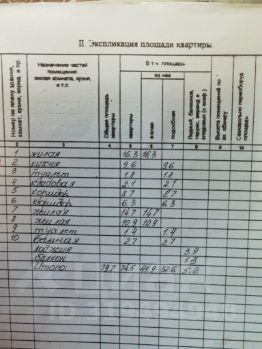 II. Экспликация площади квартиры
Номер по плану здания, комнат, кухня, корид. и пр.
Назначение частей помещения жилая комната, кухня, и т.п.
Общая площадь квартиры
В т.ч. площадь
квартиры
из нее
жилая
подсобная
Лоджий, балконов, террас, веранд и кладовых (с коэф.)
Высота помещений по вн. обмеру
Самовольно переоборуд. площадь
1 2 3 4 5 6 7 8 9 10
1 жилая 16.3 16.3
2 кухня 9.6 9.6
3 туалет 1.8 1.8
4 кладовая 2.1 2.1
5 коридор 8.7 8.7
6 коридор 6.3 6.3
7 жилая 14.7 14.7
8 жилая 10.9 10.9
9 туалет 1.4 1.4
10 ванная 2.7 2.7
лоджия 3.9
балкон 1.3
Итого: 79.7 74.5 41.9 32.6 5.2